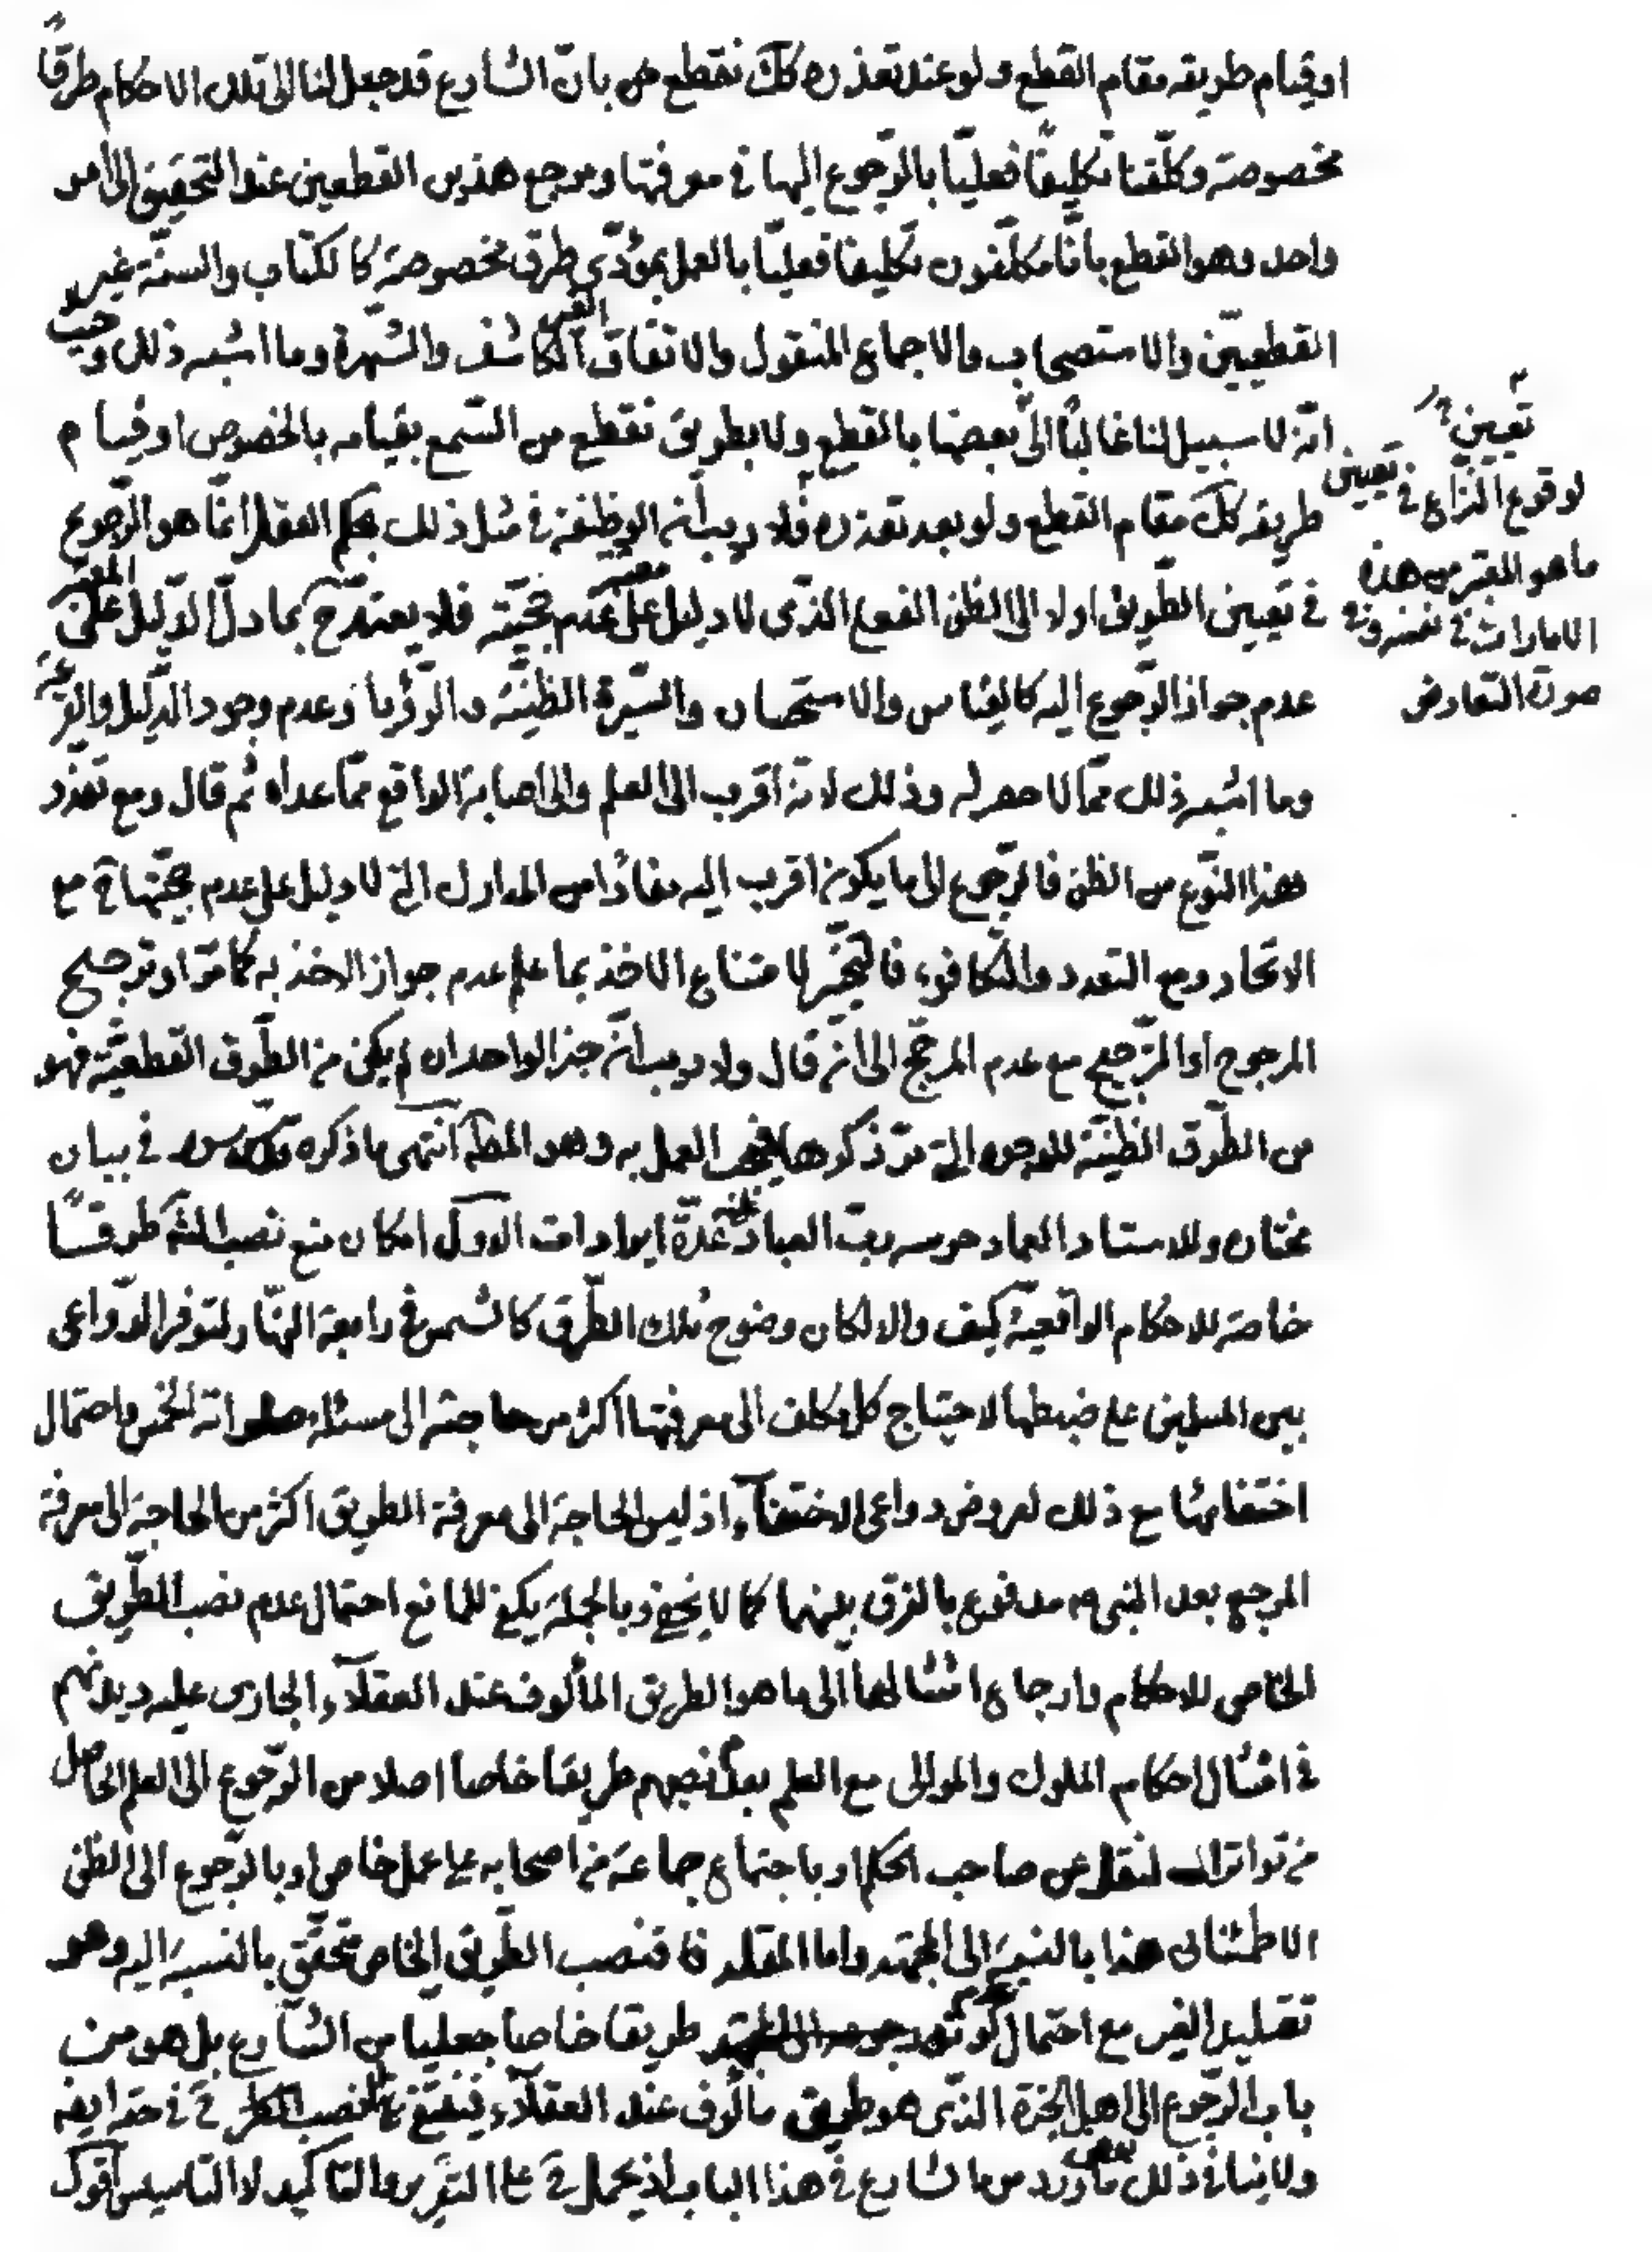 او قيام طريقه مقام القطع ولو عند تعذره كك نقطع بان الشارع قد جعل لنا الى تلك الاحكام طرقاً
مخصوصة وكلّفنا تكليفاً فعليّا بالرّجوع اليها فى معرفتها ومرجع هذين القطعين عند التحقيق الى امر
واحد وهو القطع بانّا مكلّفون تكليفا فعليّا بالعمل بمؤدّى طرق مخصوصة كالكتاب والسنّة غير
القطعيّين والاستصحاب والاجماع المنقول والاتفاق الغير الكاشف والشّهرة وما اشبه ذلك وحيث
انّه لا سبيل لنا غالباً الى بعضها بالقطع ولا بطريق نقطع من السّمع بقيامه بالخصوص او قيام
طريقه كك مقام القطع ولو بعد تعذره فلا ريب انّ الوظيفة فى مثل ذلك بحكم العقل انّما هو الرّجوع
فى تعيين الطّريق اولا الى الظن الفعلى الّذى لا دليل على عدم حجّيّته فلا يعتد ح بما دلّ الدّليل المعتبر على
عدم جواز الرّجوع اليه كالقياس والاستحسان والسّيرة الظنيّة والرّؤيا وعدم وجود الدّليل والقرعة
وما اشبه ذلك ممّا لا حصر له وذلك لانّه اقرب الى العلم والى اصابة الواقع ممّا عداه ثم قال ومع تعذّر
هذا النّوع من الظن فالرّجوع الى ما يكون اقرب اليه مفاداً من المدارك الّتى لا دليل على عدم حجّيتها ح مع
الاتّحاد ومع التعدد والتّكافؤ فالتّخيير لامتناع الاخذ بما علم عدم جواز الاخذ به كما مرّ او ترجيح
المرجوح او الترّجيح مع عدم المرجّح الى ان قال ولا ريب انّ خبر الواحد ان لم يكن من الطّرق القطعيّة فهو
من الطّرق الظنيّة للوجوه الّتى مرّ ذكرها فيجب العمل به وهو المط انتهى ما ذكره قدس سره فى بيان
مختاره وللاستاد العماد حرسه ربّ العباد عليه عدّة ايرادات الاوّل امكان منع نصب الش طرقاً
خاصّة للاحكام الواقعيّة كيف والا لكان وضوح تلك الطّرق كالشمس فى رابعة النّهار لتوفر الدّواعى
بين المسلمين على ضبطها لاحتياج كل مكلف الى معرفتها اكثر من حاجته الى مسئلة صلواته الخمس واحتمال
اختفائها مع ذلك لعروض دواعى الاختفآء اذ ليس الحاجة الى معرفة الطريق اكثر من الحاجة الى معرفة
المرجع بعد النبى ص مدفوع بالفرق بينهما كما لا يخفى وبالجملة يكفى للمانع احتمال عدم نصب الطّريق
الخاصّ للاحكام وارجاع امتثالها الى ما هو الطريق المألوف عند العقلآء الجارى عليه ديدنهم
فى امتثال احكام الملوك والموالى مع العلم بعدم نصبهم طريقا خاصا اصلا من الرّجوع الى العلم الحاصل
من تواتر النقل عن صاحب الحكم او باجتماع جماعة من اصحابه على عمل خاص او بالرّجوع الى الظن
الاطمئنانى هذا بالنسبة الى المجتهد واما المقلد فنصب الطّريق الخاص متحقّق بالنسبة اليه وهو
تقليد الغير مع احتمال عدم كونه طريقا خاصا جعليا من الشارع بل هو من
باب الرّجوع الى اهل الخبرة الّذى هو طريق مألوف عند العقلآء فينتفى نصب الطريق ح فى حقه ايضا
ولا ينافى ذلك بعض ما ورد من الشارع فى هذا الباب اذ يحمل ح على التقرير والتاكيد لا التاسيس اقول
تعيين
لوقوع النّزاع فى تعيين
ما هو المعتبر من هذه
الامارات فى نفسه وفى
صورة التّعارض